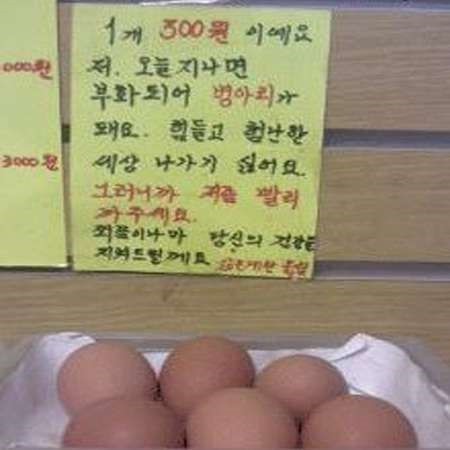 000원
3000원
1개 300원 이예요
저. 오늘지나면
부화되어 병아리가
돼요. 힘들고 험난한
세상 나가기 싫어요.
그러니까 저를 빨리
까주세요.
죄쫌이나마 당신의 건강을
지켜드릴께요